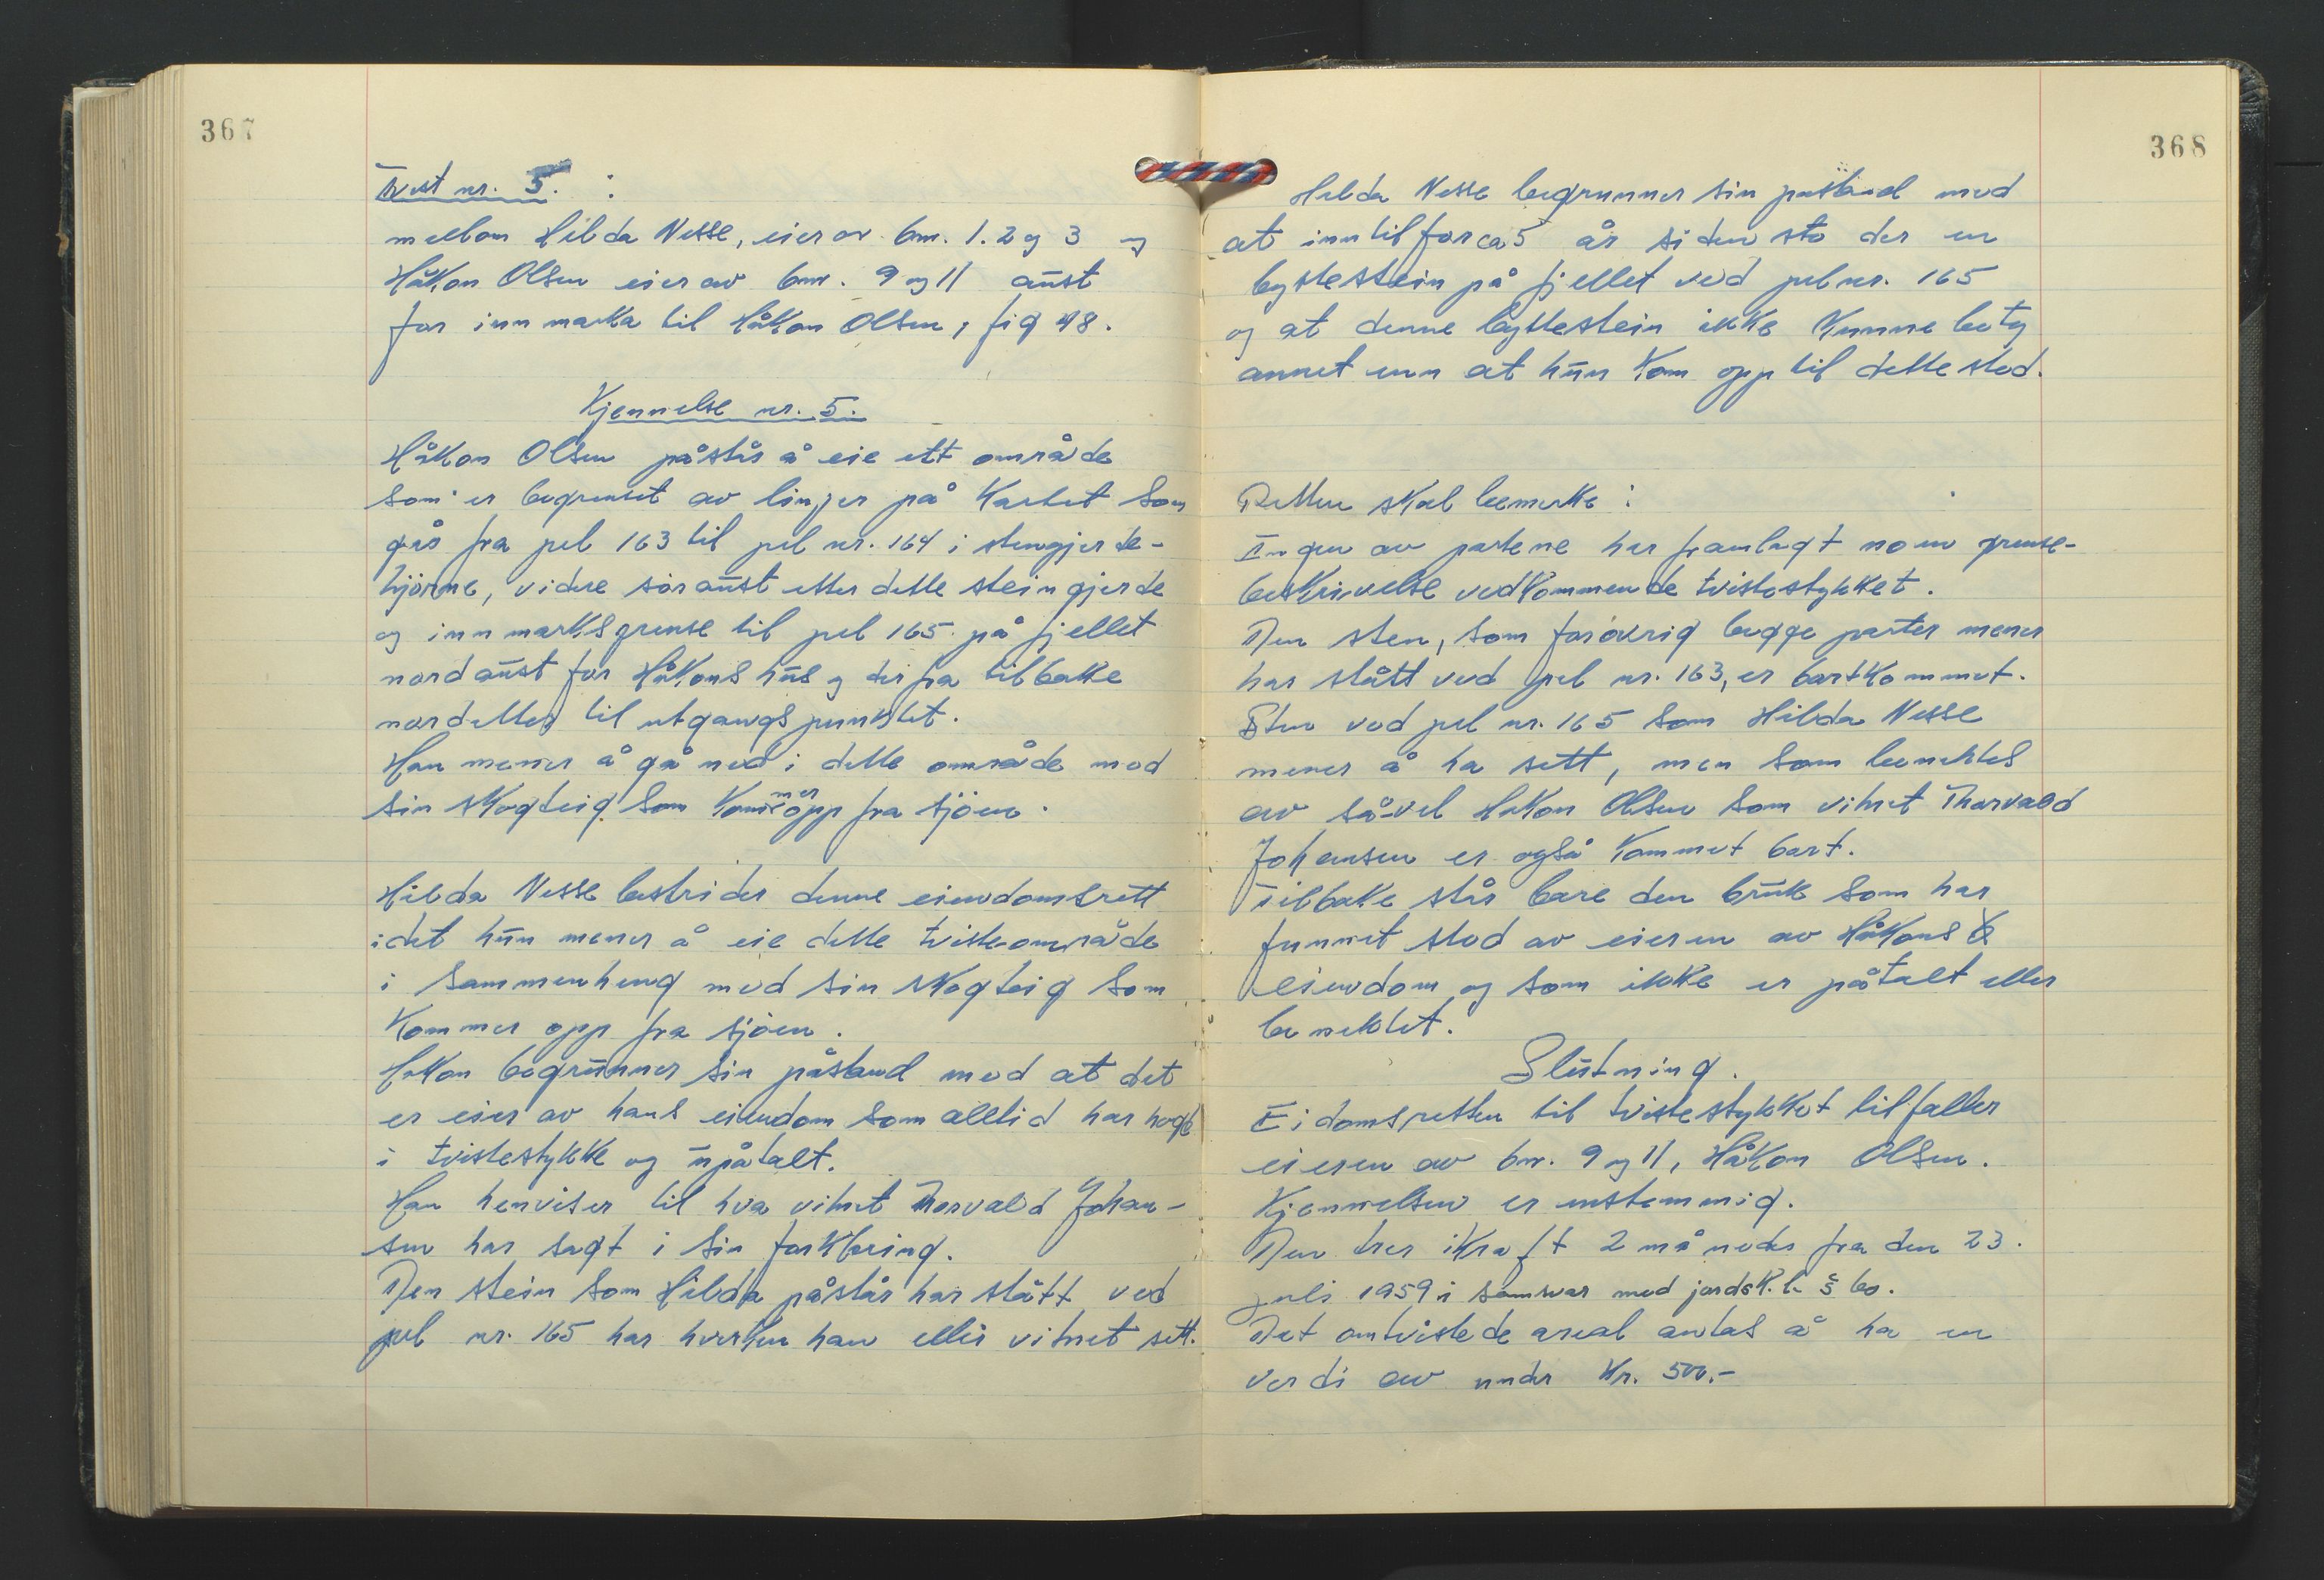 367
Tvist nr. 5. :
mellom Hilda Nesse, eier av bnr. 1. 2 og 3 og
Håkon Olsen eier av bnr. 9 og 11 aust
for innmarka til Håkon Olsen, fig 48.
Kjennelse nr. 5.
Håkon Olsen påstår å eie ett område
som er begrenset av linjer på kartet som
går fra pel 163 til pel nr. 164 i stengjerde-
hjørne, videre søraust etter dette steingjerde
og innmarksgrense til pel 165 på fjellet
nordaust for Håkons hus og derfra tilbake
nordetter til utgangspunktet.
Han mener å gå ned i dette område med
sin skogteig som kommer opp fra sjöen.
Hilda Nesse bestrider denne eiendomsrett
idet hun mener å eie dette tvisteområde
i sammenheng med sin skogteig som
kommer opp fra sjöen.
Håkon begrunner sin påstand med at det
er eier av hans eiendom som alltid har hogt
i tvistestykke og upåtalt.
Han henviser til hva vitnet Thorvald Johan-
sen har sagt i sin forklaring.
Den stein som Hilda påstår har stått ved
pel nr. 165 har hverken han eller vitnet sett.
368
Hilda Nesse begrunner sin påstand med
at inntil for ca 5 år siden sto der en
bytestein på fjellet ved pel nr. 165
og at denne bytestein ikke kunne bety
annet enn at hun kom opp til dette sted.
Retten skal bemerke :
Ingen av partene har framlagt noen grense-
beskrivelse vedkommende tvistestykket.
Den sten, som forøvrig begge parter mener
har stått ved pel nr. 163, er bortkommet.
Sten ved pel nr. 165 som Hilda Nesse
mener å ha sett, men som benektes
av så-vel Håkon Olsen som vitnet Thorvald
Johansen er også kommet bort.
Tilbake står bare den bruk som har
funnet sted av eieren av Håkons
eiendom og som ikke er påtalt eller
benektet.
Slutning.
Eidomsretten til tvistestykket tilfaller
eieren av bnr. 9 og 11, Håkon Olsen.
Kjennelsen er enstemmig.
Den trer ikraft 2 måneder fra den 23.
juli 1959 i samsvar med jordsk.l. § 60.
Det omtvistede areal antas å ha en
verdi av under kr. 500.-